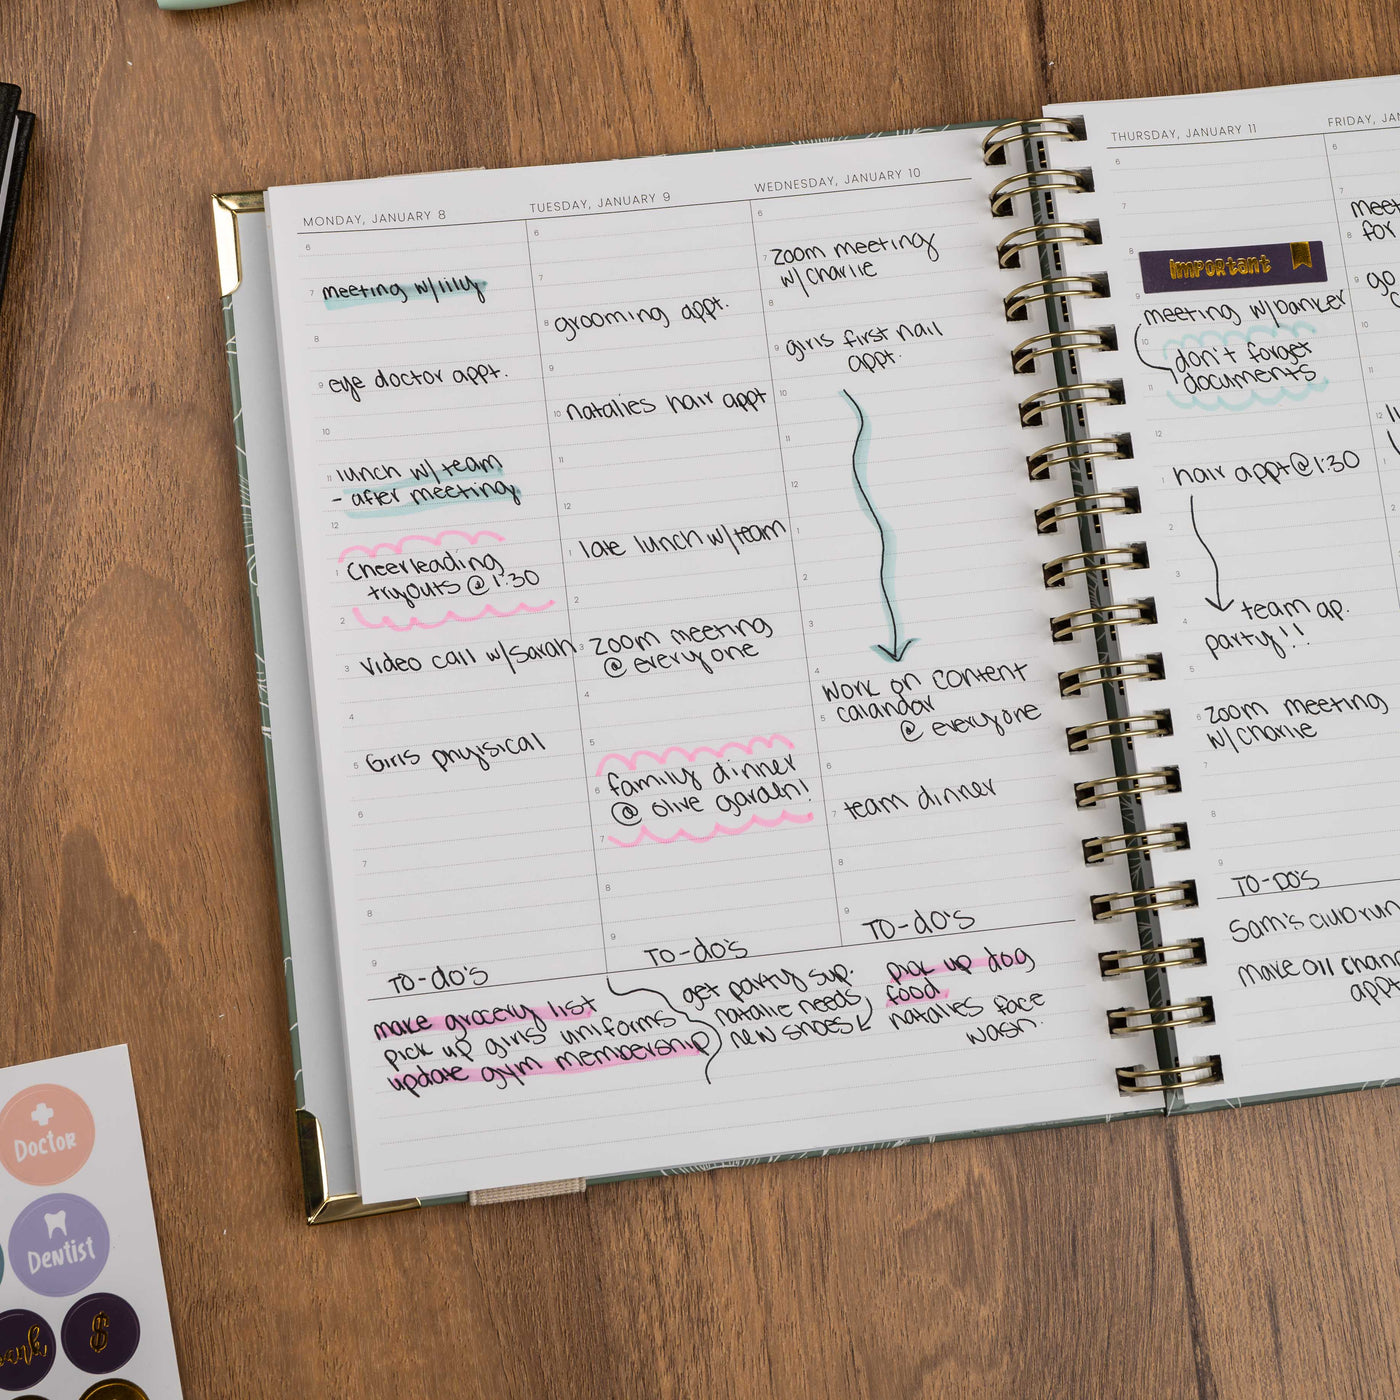 MONDAY, JANUARY 8
6
7 meeting w/lily
8
9 eye doctor appt.
10
11 lunch w/ team
- after meeting
12
1 Cheerleading
tryouts @ 1:30
2
3 video call w/Sarah
4
5 Girls phyisical
6
7
8
9
TO-do's
make grocery list
pick up girls uniforms
update gym membership
TUESDAY, JANUARY 9
6
7
8 grooming appt.
9
10 natalies hair appt
11
12
1 late lunch w/team
2
3 Zoom meeting
@ everyone
4
5
6 family dinner
@ olive garden!
7
8
9
TO-do's
get party sup.
natalie needs
new shoes
WEDNESDAY, JANUARY 10
6
7 zoom meeting
w/ Charlie
8
9 girls first nail
appt.
10
11
12
1
2
3
4
work on content
5 calandar
@ everyone
6
7 team dinner
8
9
TO-do's
pick up dog
food
natalies face
wash.
THURSDAY, JANUARY 11
6
7
8
Important
9
meeting w/banker
10
don't forget
11 documents
12
1 hair appt @ 1:30
2
3
4 team ap.
party!!
5
6 zoom meeting
w/Charlie
7
8
9
TO-DO'S
Sam's club run
make oil chan
appt
FRIDAY, JAN
6
7
meet
8 for
9 go
10
12
1
2
Doctor
Dentist
$